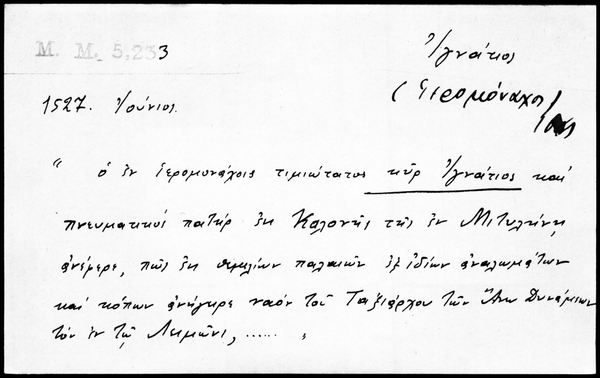 M. M. 5,233
Ἰγνάτιος
(Ἱερομόναχος)
1527. Ἰούνιος.
" ὁ ἐν ἱερομονάχοις τιμιώτατος κῦρ Ἰγνάτιος καί
πνευματικός πατήρ ἐκ Καλονῆς τῆς ἐν Μιτυλήνῃ
ἀνέφερε, πῶς ἐκ θεμελίων παλαιῶν ἐξ ἰδίων ἀναλωμάτων
καί κόπων ἀνήγειρε ναόν τοῦ Ταξιάρχου τῶν Ἄνω Δυνάμεων
τόν ἐν τῷ Λειμῶνι, ...... "